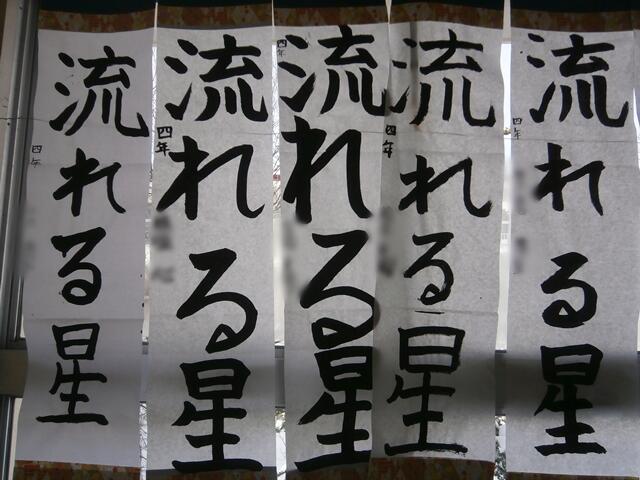 流れる星
四年
流れる星
四年
流れる星
四年
流れる星
四年
流れる星
四年